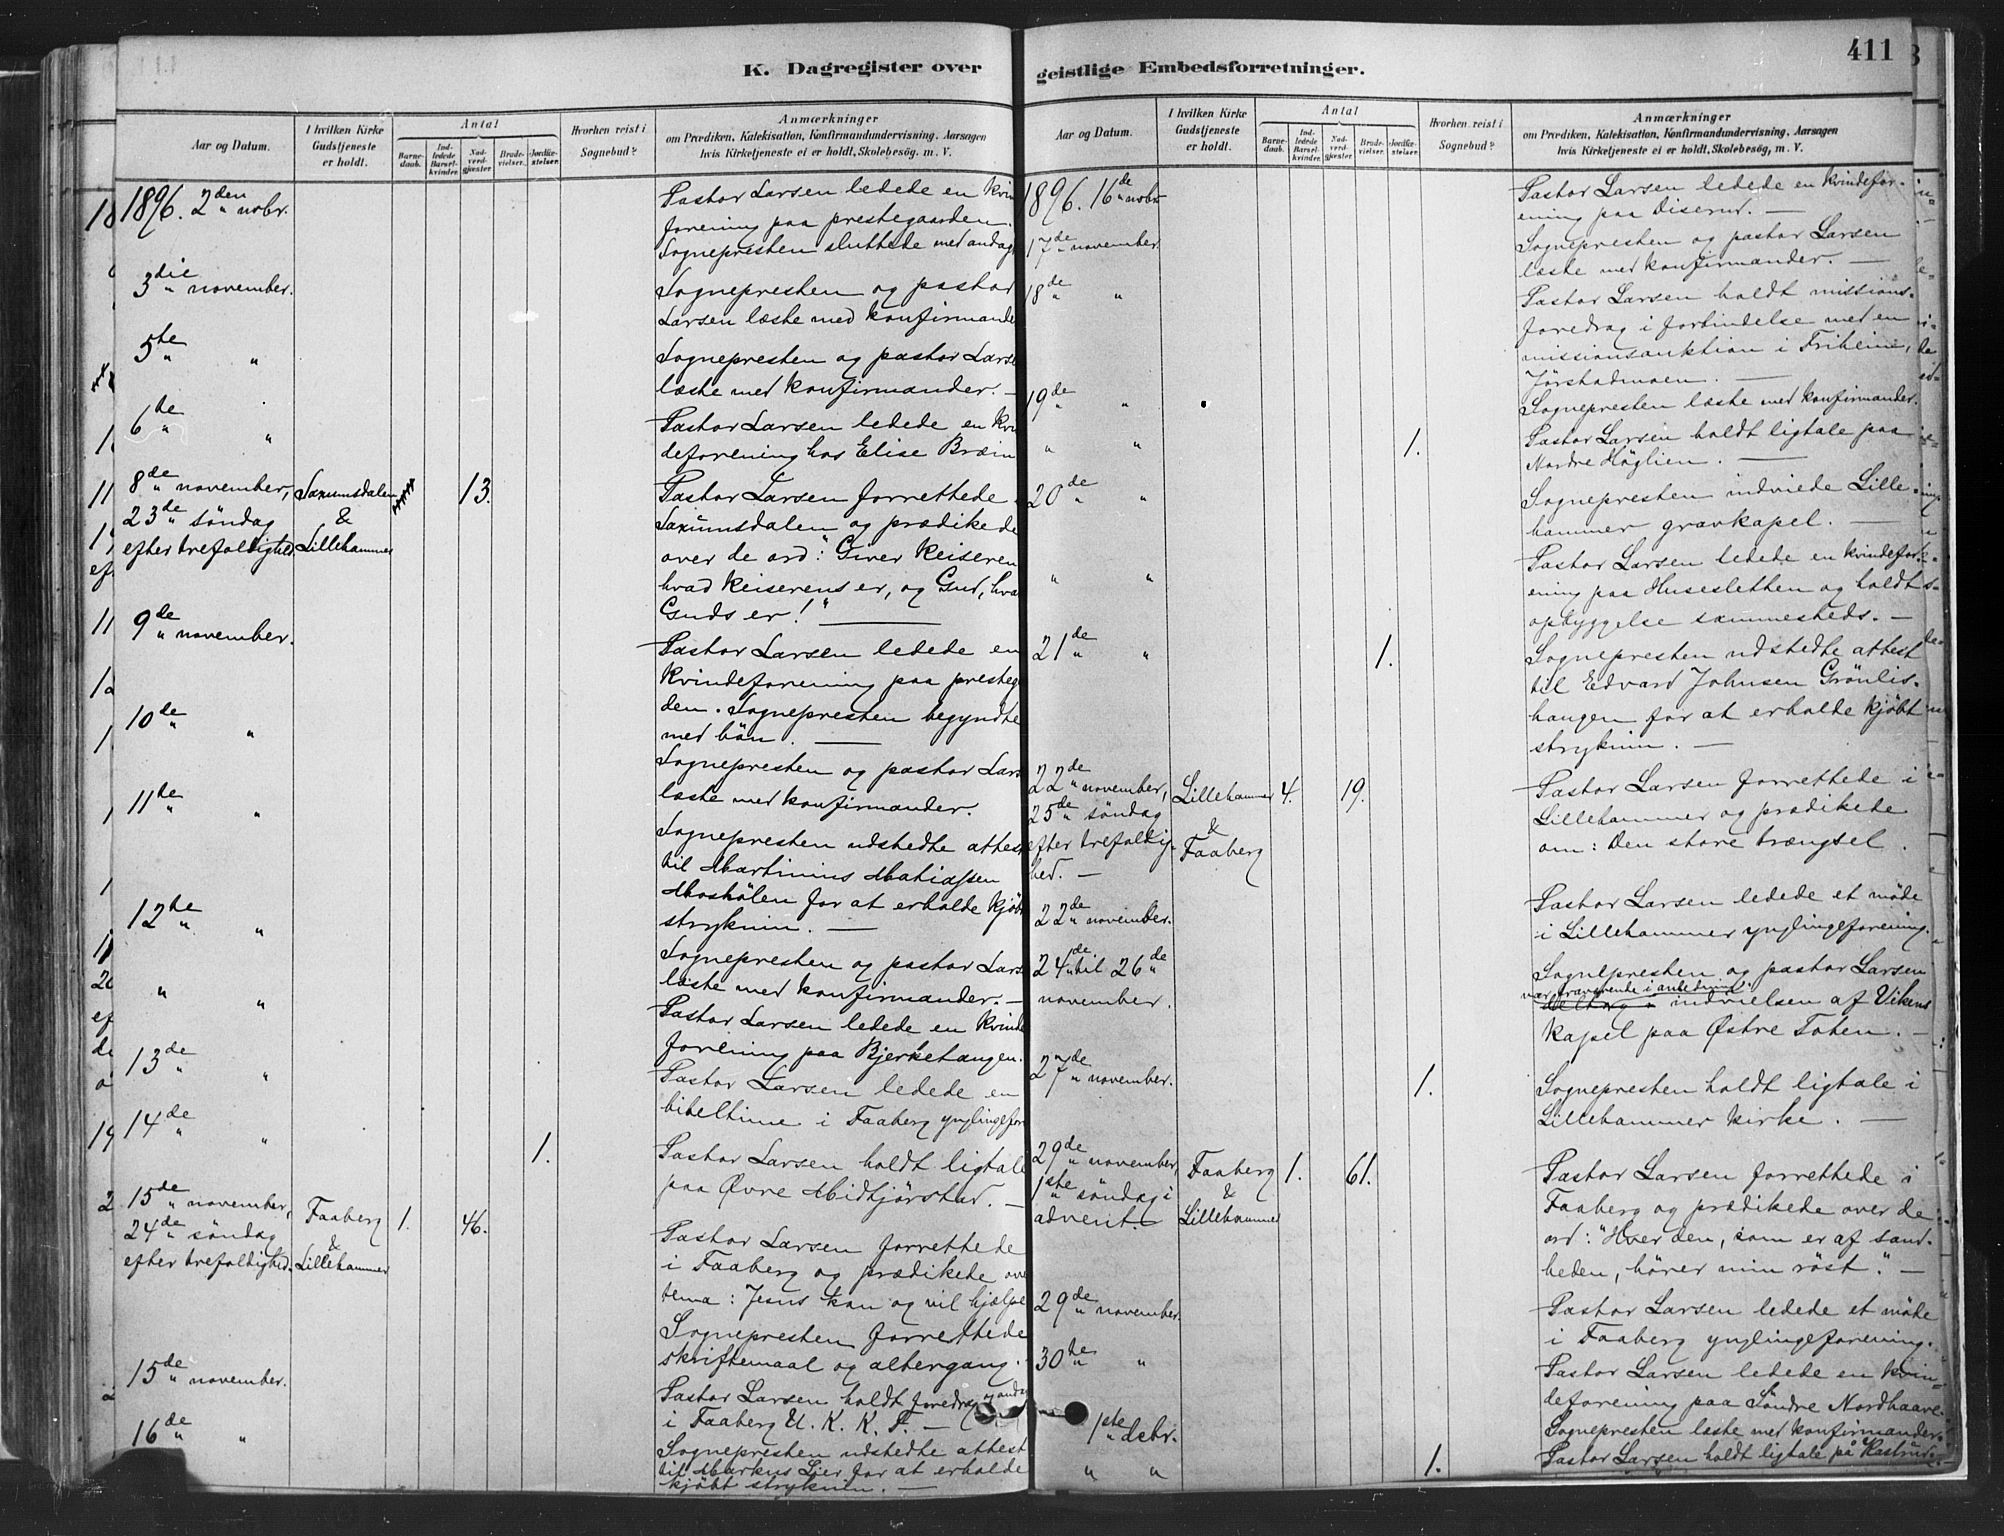 K. Dagregister over
Aar og Datum.
I hvilken Kirke Gudstjeneste er holdt.
Antal
Barnedaab.
Indledede Barselkvinder.
Nadverdgjæster
Brudevielser.
Jordfæstelser.
Hvorhen reist i Sognebud?
Anmærkninger
om Prædiken, Katekisation, Konfirmandundervisning, Aarsagen
hvis Kirketjeneste ei er holdt, Skolebesøg. m. V.
1896. 2den nobr.
Pastor Larsen ledede en kvin
forening paa prestegaarden.
Sognepresten sluttede med andagt
3die november.
Sognepresten og pastor
Larsen læste med konfirmande
5te "
Sognepresten og pastor Larse
læste med konfirmander. —
6de "
Pastor Larsen ledede en kvin
deforening hos Elise Bræin
8de november, Saxumsdalen 13.
23de söndag &
efter trefoldighed Lillehammer
Pastor Larsen forrettede
Saxumsdalen og prædikede
over de ord: "Giver keiseren
hvad keiserens er, og Gud, hva
Guds er!" —
9de november.
Pastor Larsen ledede en
kvindeforening paa presteg
den. Sognepresten begyndte
med bön. —
10de "
Sognepresten og pastor Lars
læste med konfirmander.
11de "
Sognepresten udstedte attest
til Martinius Mathiasen
Moshölen for at erholde kjöb
stryknin. —
12de "
Sognepresten og pastor Lars
læste med konfirmander. —
" "
Pastor Larsen ledede en kvinde
forening paa Bjerkehaugen.
13de "
Pastor Larsen ledede en
bibeltime i Faaberg ynglingefor
14de " 1.
Pastor Larsen holdt ligtale
paa Øvre Midtjörstad. —
15de november, Faaberg 1. 46.
24de söndag &
efter trefoldighed. Lillehammer
Pastor Larsen forrettede
i Faaberg og prædikede ove
tema: Jesus kan og vil hjælpe
Sognepresten forrettede
skriftemaal og altergang.
15de november.
Pastor Larsen holdt foredrag og andag
i Faaberg U. K. K. F. —
16de "
Sognepresten udstedte attest
til Markus Lier for at erholde
kjöbt stryknin. —
411
geistlige Embedsforretninger.
Aar og Datum.
I hvilken Kirke Gudstjeneste er holdt.
Antal
Barnedaab.
Indledede Barselkvinder.
Nadverdgjæster.
Brudevielser.
Jordfæstelser.
Hvorhen reist i Sognebud?
Anmærkninger
om Prædiken, Katekisation, Konfirmandundervisning, Aarsagen
hvis Kirketjeneste ei er holdt, Skolebesøg, m. V.
1896. 16de nobr.
Pastor Larsen ledede en kvindefor-
ening paa Diserud. —
17de november
Sognepresten og pastor Larsen
læste med konfirmander. —
18de "
Pastor Larsen holdt missions-
foredrag i forbindelse med en
missionsauktion i Friheim,
Jörstadmoen. —
19de "
Sognepresten læste med konfirmander.
" " 1.
Pastor Larsen holdt ligtale paa
Nordre Höglien. —
20de "
Sognepresten indviede Lille-
hammer gravkapel. —
" "
Pastor Larsen ledede en kvindefor-
ening paa Husesletten og holdt
opbyggelse sammesteds. —
21de " 1.
Sognepresten udstedte attest
til Edvard Johnsen Grönlis-
haugen for at erholde kjöbt
stryknin. —
22de november, Lillehammer 4. 19.
25de söndag &
efter trefoldig- Faaberg
hed. —
Pastor Larsen forrettede i
Lillehammer og prædikede
om: Den store trængsel.
22de november.
Pastor Larsen ledede et möde
i Lillehammer ynglingeforening.
24de til 26de
november.
Sognepresten og pastor Larsen
var fraværende i anledning
indvielsen af Vikens
kapel paa Østre Toten. —
27de november. 1.
Sognepresten holdt ligtale i
Lillehammer kirke. —
29de november, Faaberg 1. 61.
1ste söndag i &
advent. — Lillehammer
Pastor Larsen forrettede i
Faaberg og prædikede over de
ord: "Hver den, som er af sand-
heden, hörer min röst." —
29de november.
Pastor Larsen ledede et möde
i Faaberg ynglingeforening.
30te "
Pastor Larsen ledede en kvin-
deforening paa Söndre Nordhaave.
1ste debr.
Sognepresten læste med konfirmander.
" " 1.
Pastor Larsen holdt ligtale på Kastrud. —